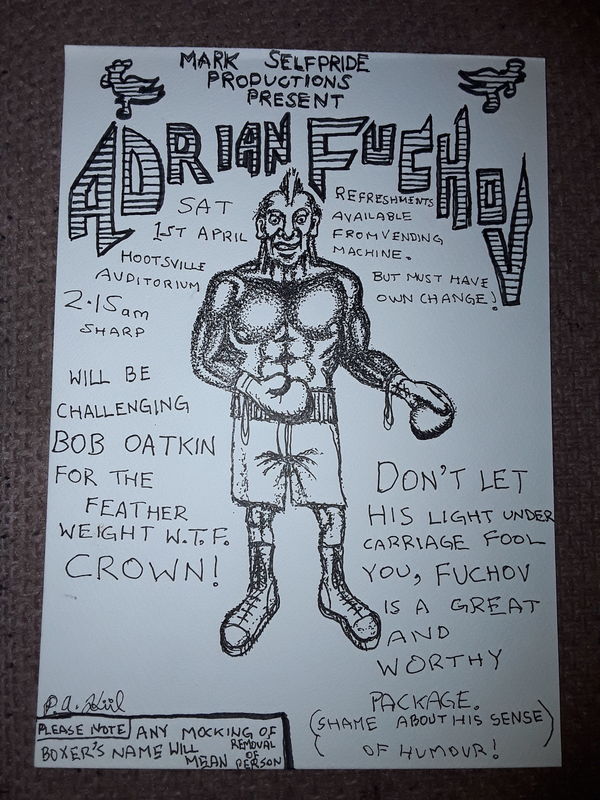 MARK SELFPRIDE
PRODUCTIONS
PRESENT
ADRIAN FUCHOV
SAT
1ST APRIL
HOOTSVILLE
AUDITORIUM
2.15am
SHARP
REFRESHMENTS
AVAILABLE
FROM VENDING
MACHINE.
BUT MUST HAVE
OWN CHANGE!
WILL BE
CHALLENGING
BOB OATKIN
FOR THE
FEATHER
WEIGHT W.T.F.
CROWN!
DON'T LET
HIS LIGHT UNDER
CARRIAGE FOOL
YOU, FUCHOV
IS A GREAT
AND
WORTHY
PACKAGE.
(SHAME ABOUT HIS SENSE
OF HUMOUR!)
P.A.
PLEASE NOTE ANY MOCKING OF
BOXER'S NAME WILL
MEAN REMOVAL
OF
PERSON